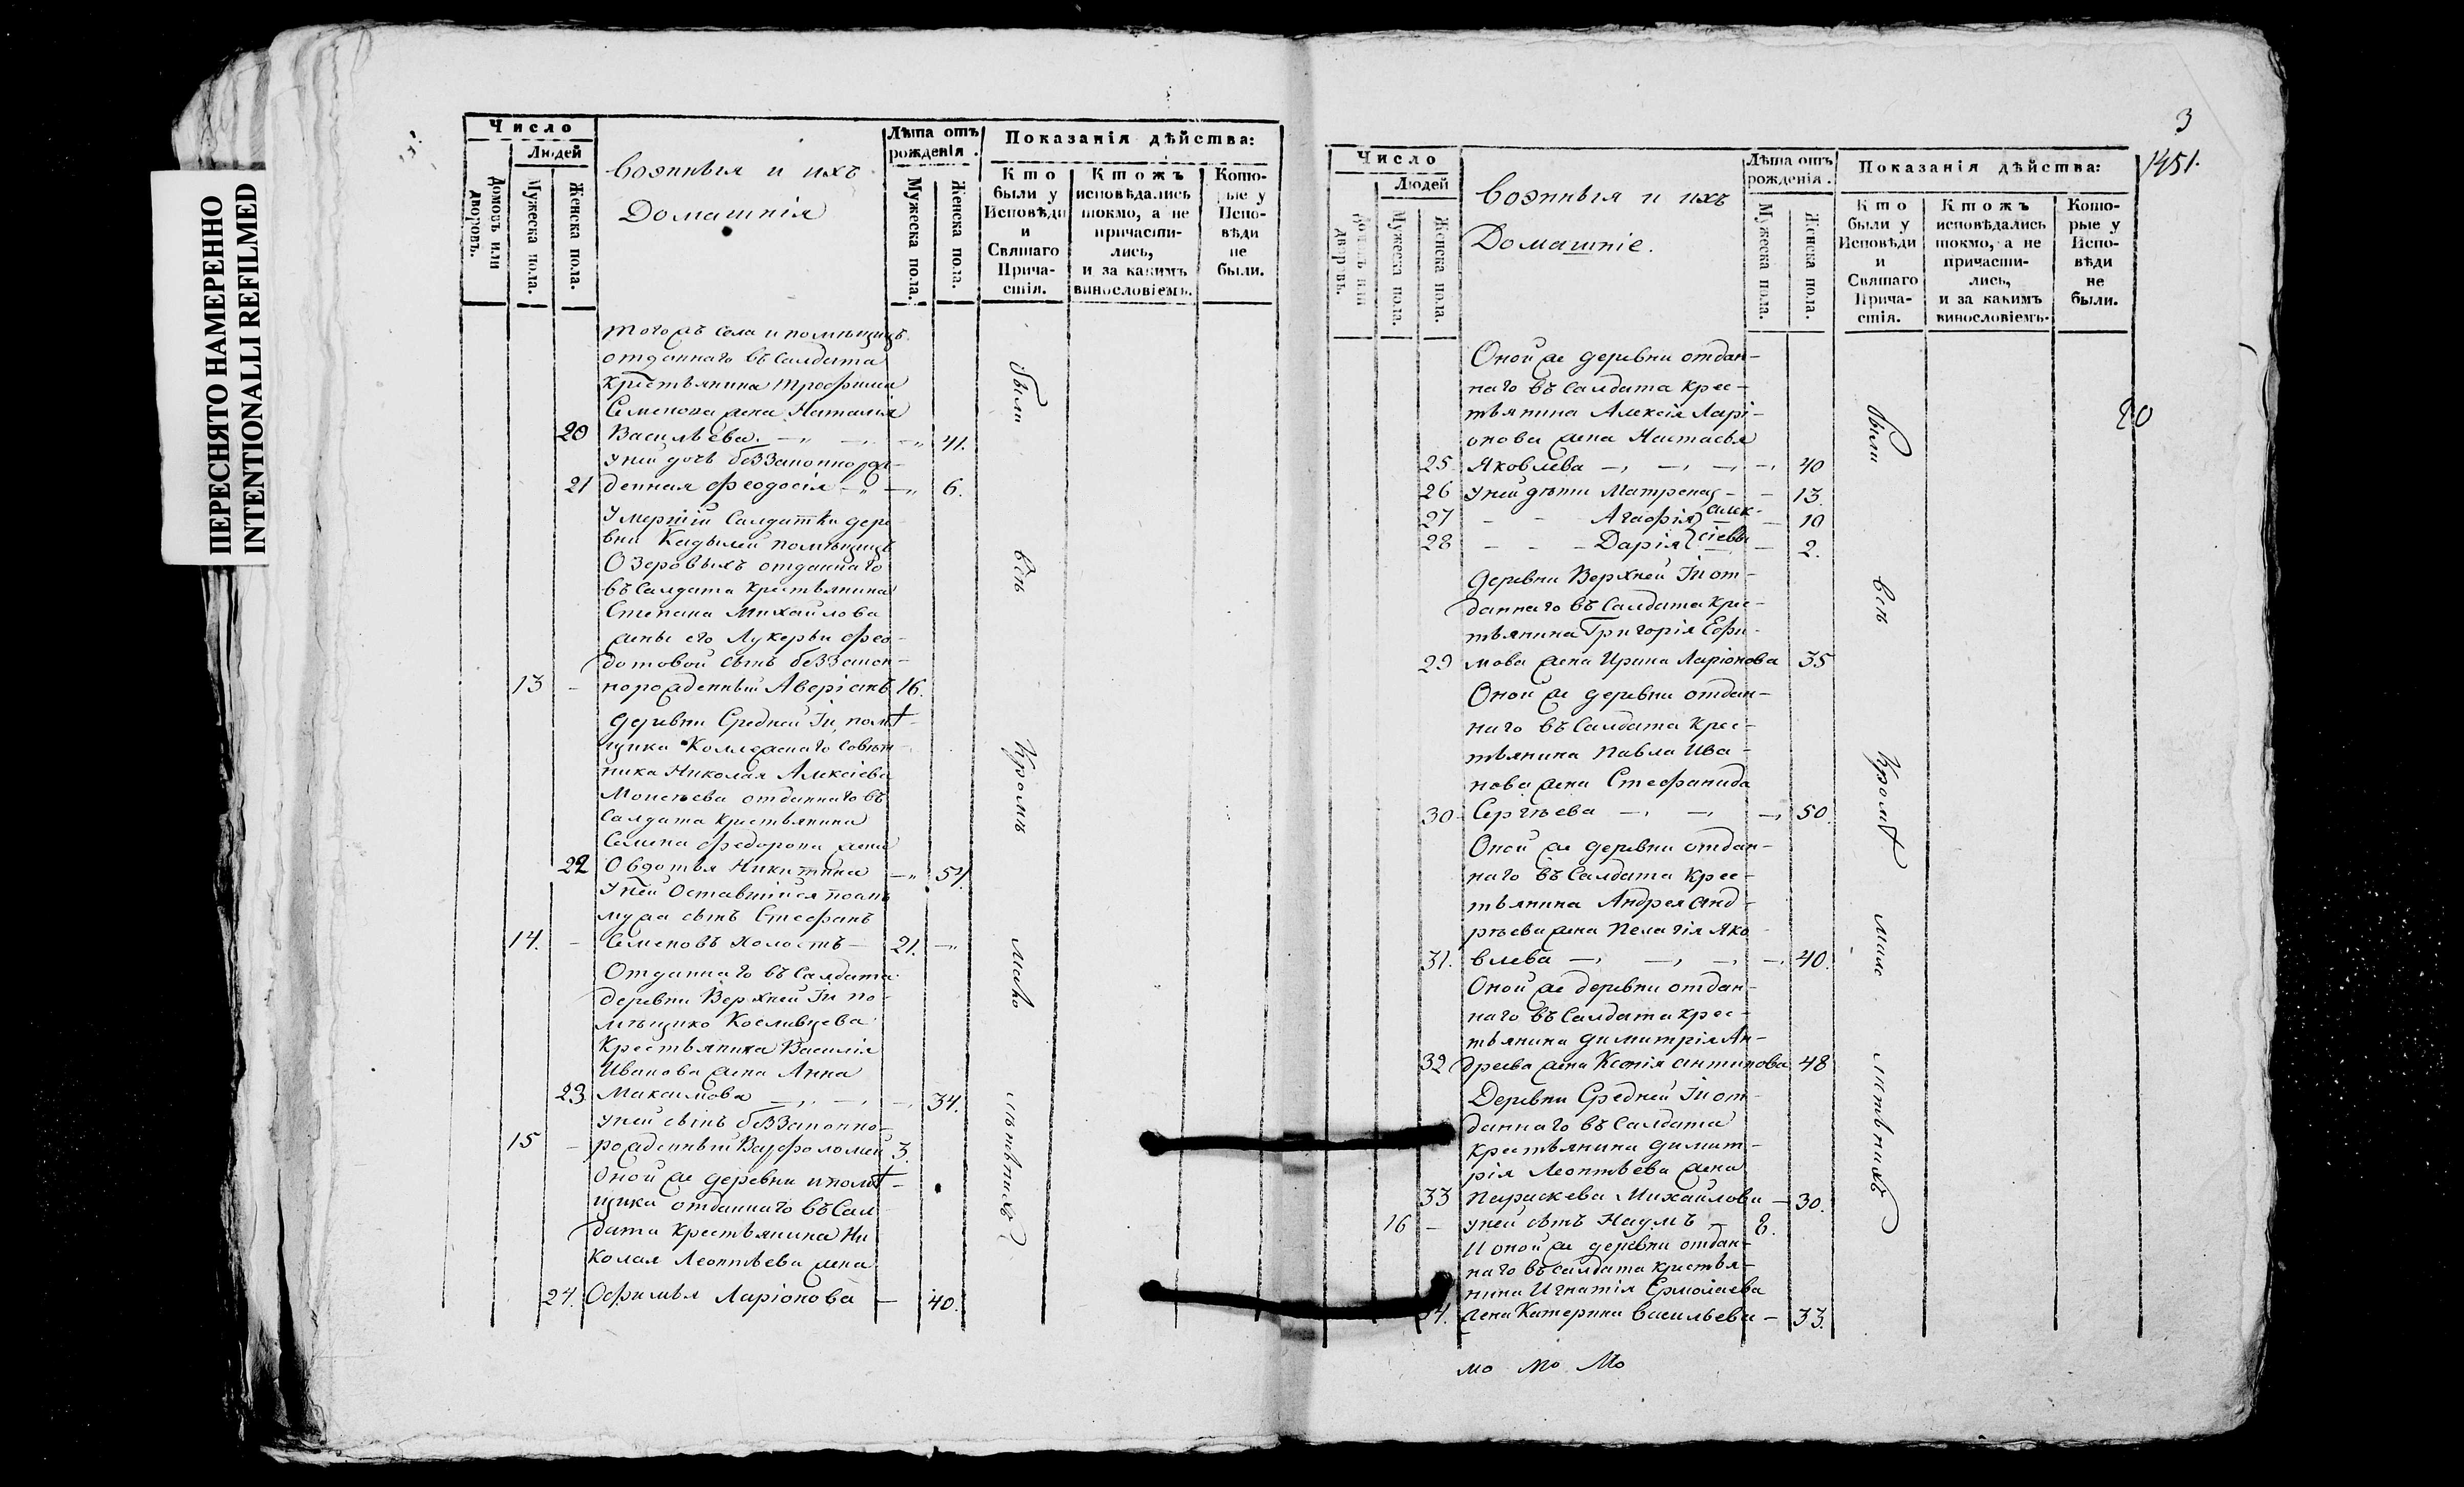 ПЕРЕСНЯТО НАМЕРЕННО
INTENTIONALLI REFILMED
Число
Людей
Домовъ или дворовъ.
Мужеска пола.
Женска пола.
Военныя и ихъ
Домашнія
Лѣта отъ рожденія.
Мужеска пола.
Женска пола.
Показанія дѣйства:
Кто были у Исповѣди и Святаго Причастія.
Ктожъ исповѣдались токмо, а не причастились, и за какимъ винословіемъ.
Которые у Исповѣди не были.
тогожъ села и помѣщицъ
отданнаго въ Салдата
крестьянина Трофима
Семенова жена Наталія
20 Васильева 41.
у ней дочь беззаконнорож-
21 денная Феодосія 6.
Умершій Салдатки дере
вни Кадышей помѣщицъ
Озеровыхъ отданнаго
въ Салдата крестьянина
Степана Михайлова
жены его Лукерьи Фео-
дотовой сынъ беззакон-
13 - норожденный Аверіанъ 16.
деревни Средней Ін помѣ-
щика Коллежскаго Совѣт-
ника Николая Алексіева
отданнаго въ
Салдата крестьянина
Семена Федорова жена
22 Овдотья Никитина
у ней Оставшійся по
мужа сынъ Стефанъ
14. - Семеновъ холостъ 21.
Отданнаго въ Салдата
деревни Верхней Ін по-
мѣщико
Крестьянина Василія
Иванова жена Анна
23. Максимова 34.
у ней сынъ беззаконно-
15 - рожденный Варфоломей 3.
Оной же деревни и помѣ-
щика отданнаго въ Сал
дата Крестьянина Ни
колая Леонтьева жена
24. Офимья Ларіонова - 40.
были
всѣ
Кромѣ
мало
лѣтныхъ
3
1451.
Число
Людей
Мужеска пола.
Женска пола.
Военныя и ихъ
Домашніе.
Лѣта отъ рожденія.
Мужеска пола.
Женска пола.
Показанія дѣйства:
Кто были у Исповѣди и Святаго Причастія.
Ктожъ исповѣдались токмо, а не причастились, и за какимъ винословіемъ.
Которые у Исповѣди не были.
Оной же деревни отдан-
наго въ Салдата крес-
тьянина Алексія Ларі-
онова жена Настасья
25. Яковлева 40
26 у ней дѣти Матрена 13.
27 - - Агафія Алек- 10
28 - - Дарія сіевы 2.
деревни Верхней Ін от-
даннаго въ Салдата крес-
тьянина Григорія Ефи-
29 мова жена Ирина Ларіонова 35
Оной же деревни отдан-
наго въ Салдата крес-
тьянина Павла Ива-
нова жена Стефанида
30 Сергѣева 50.
Оной же деревни отдан-
наго въ Салдата крес-
тьянина Андрея Анд-
рѣева жена Пелагія Яко
31. влева 40.
Оной же деревни отдан-
наго въ Салдата крес-
тьянина Димитрія Ан-
32 дреева жена Ксенія Антипова 48
Деревни Средней Ін от-
даннаго въ Салдата
крестьянина Димит-
рія Леонтьева жена
33 Параскева Михайлова - 30.
16 - у ней сынъ Наумъ - 8.
И оной же деревни отдан-
наго въ салдата крестья-
нина Игнатія Ермолаева
34. жена Катерина Васильева - 33.
были
всѣ
Кромѣ
мало
лѣтныхъ
мо мо Мо